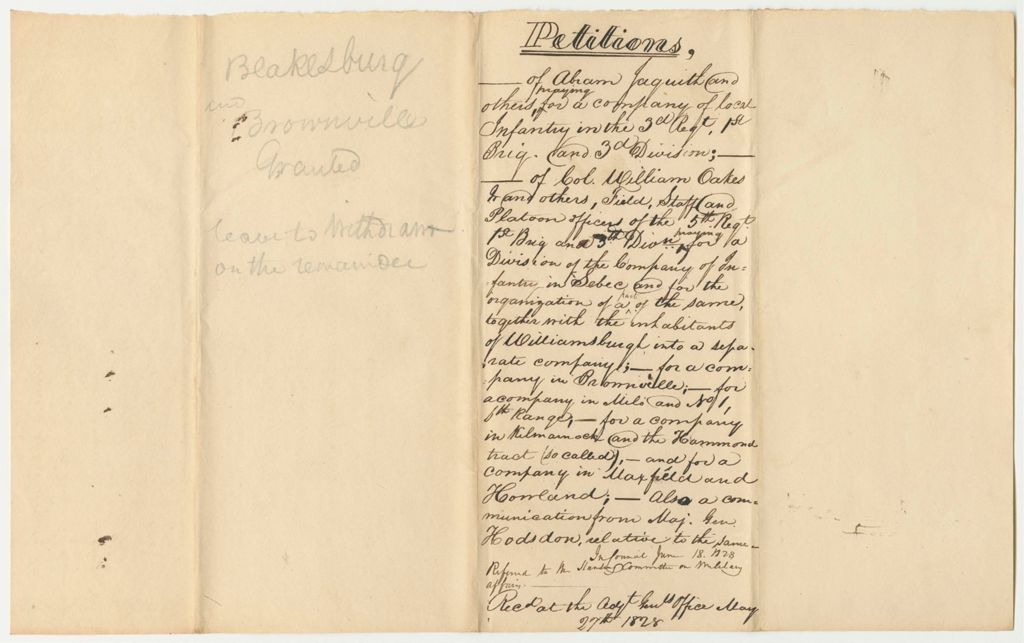 Blakesburg
and
Brownville
Granted
leave to Withdraw
on the remainder
Petitions,
— of Abram Jaquith and
others, praying for a company of local
Infantry in the 3d Regt, 1st
Brig. and 3d Division; —
— of Col. William Oakes
Jr and others, Field, Staff and
Platoon officers of the 5th Regt
1st Brig and 3th Divon praying for a
Division of the Company of In-
fantry in Sebec and for the
organization of a part of the same,
together with the inhabitants
of Williamsburgh into a sepa-
rate company; — for a com-
pany in Brownville; — for
a company in Milo and No 1,
6th Range; — for a company
in Kilmarnock and the Hammond
tract (so called), — and for a
company in Maxfield and
Howland; — Also a com-
munication from Maj. Gen.
Hodsdon, relative to the same —
In Council June 18. 1828
Referred to the Standing Committee on Military
affairs —
Recd at the Adjt Genls Office May
27th 1828